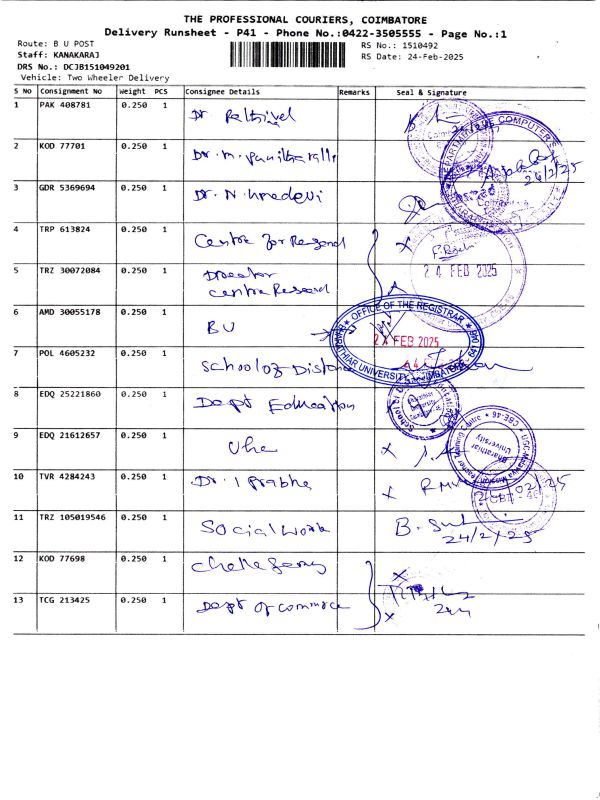 THE PROFESSIONAL COURIERS, COIMBATORE
Delivery Runsheet - P41 - Phone No.:0422-3505555 - Page No.:1
Route: B U POST
RS No.: 1510492
Staff: KANAKARAJ
RS Date: 24-Feb-2025
DRS No.: DCJB151049201
Vehicle: Two Wheeler Delivery
S No Consignment No Weight PCS Consignee Details Remarks Seal & Signature
1 PAK 408781 0.250 1 Dr.
2 KOD 77701 0.250 1 Dr. M.
24/2/25
3 GDR 5369694 0.250 1 Dr. N. Umadevi
4 TRP 613824 0.250 1 Centre for
5 TRZ 30072084 0.250 1 Director
24 FEB 2025
centre
6 AMD 30055178 0.250 1 BU
OFFICE OF THE REGISTRAR
24 FEB 2025
BHARATHIAR UNIVERSITY, COIMBATORE - 641 046
7 POL 4605232 0.250 1 School of Distance
8 EDQ 25221860 0.250 1 Dept Education
9 EDQ 21612657 0.250 1
Bharathiar University
CBE-46
10 TVR 4284243 0.250 1 Dr. I Prabha
11 TRZ 105019546 0.250 1 Social Work B.
24/2/25
12 KOD 77698 0.250 1
13 TCG 213425 0.250 1 Dept of commerce